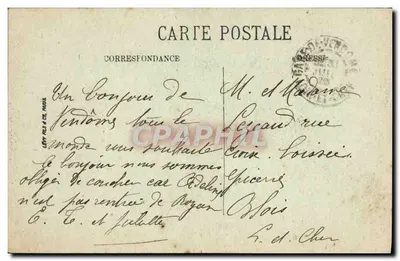 CARTE POSTALE
CORRESPONDANCE
Un bonjour de
Vendôme tous le
monde vous souhaite
le bonjour nous sommes
obligé de coucher car Adeline
n'est pas rentrée de Royan
E. T. et Juliette
M. et Madame
rue
Croix Boissée
Epicerie
Blois
L. et Cher
LEVY FILS & Cie. PARIS
CPARAMA